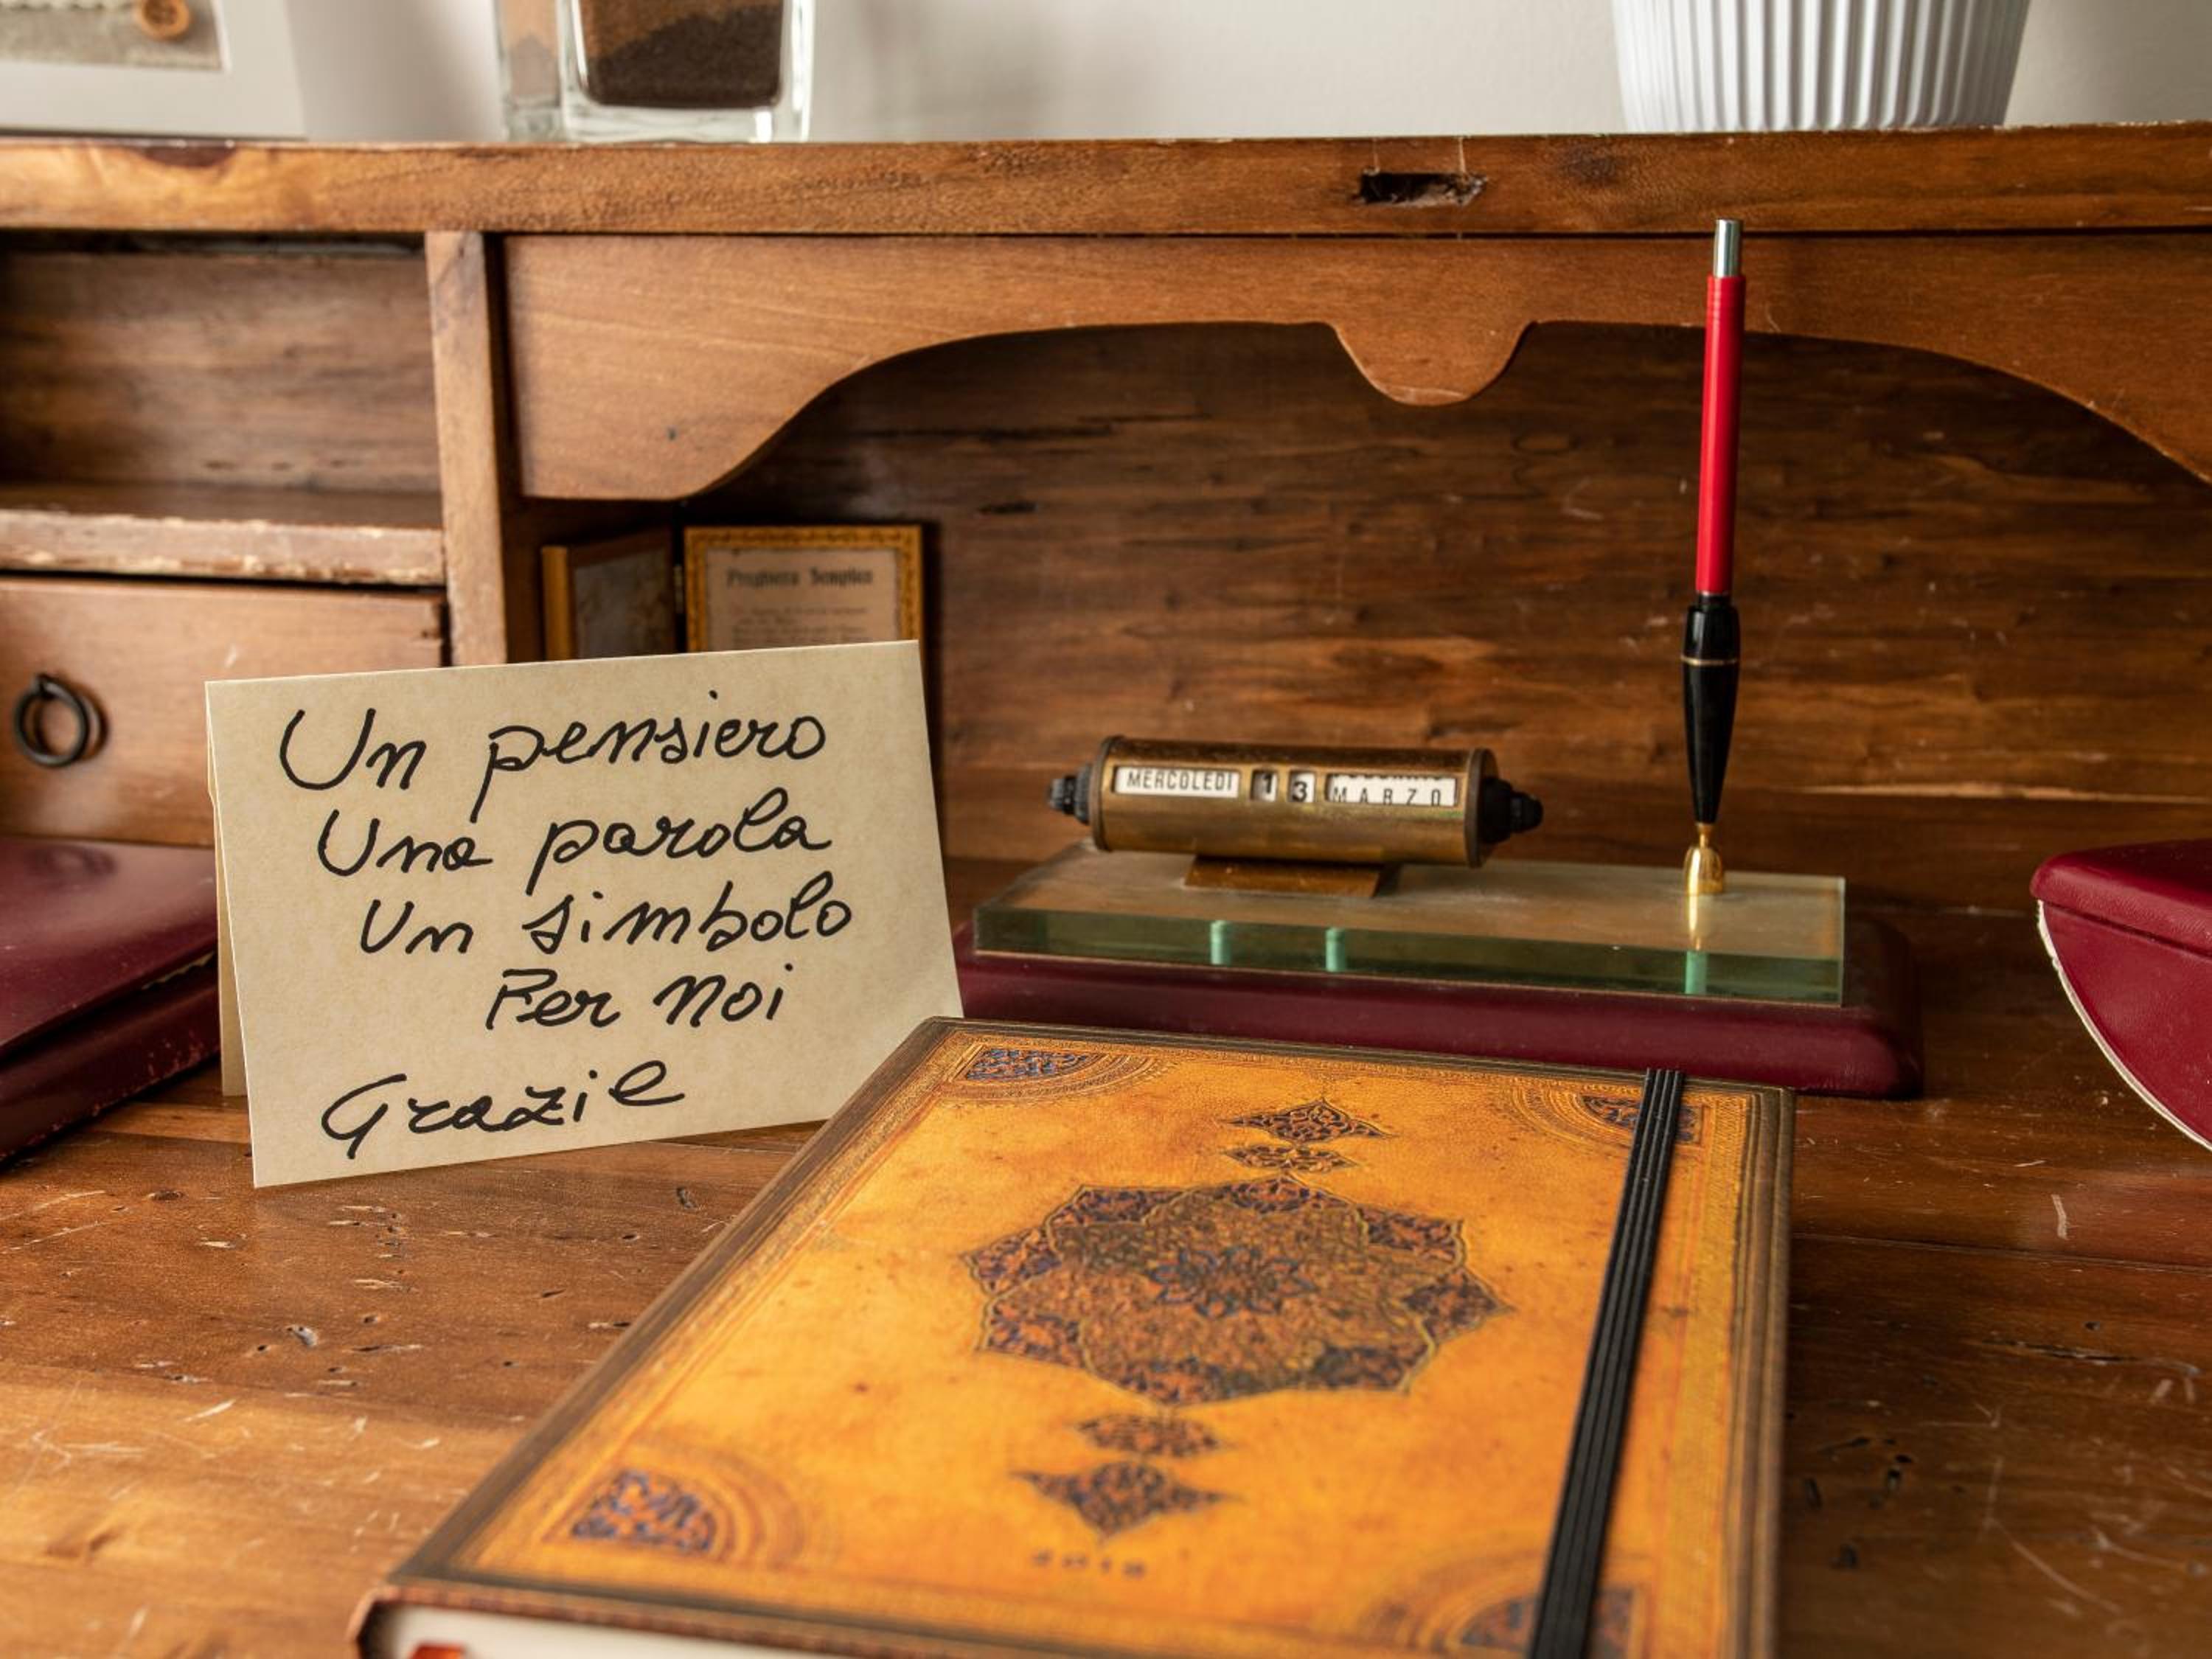 Preghiera Semplice
Un pensiero
Una parola
Un simbolo
Per noi
Grazie
MERCOLEDI 1 3 MARZO
2018